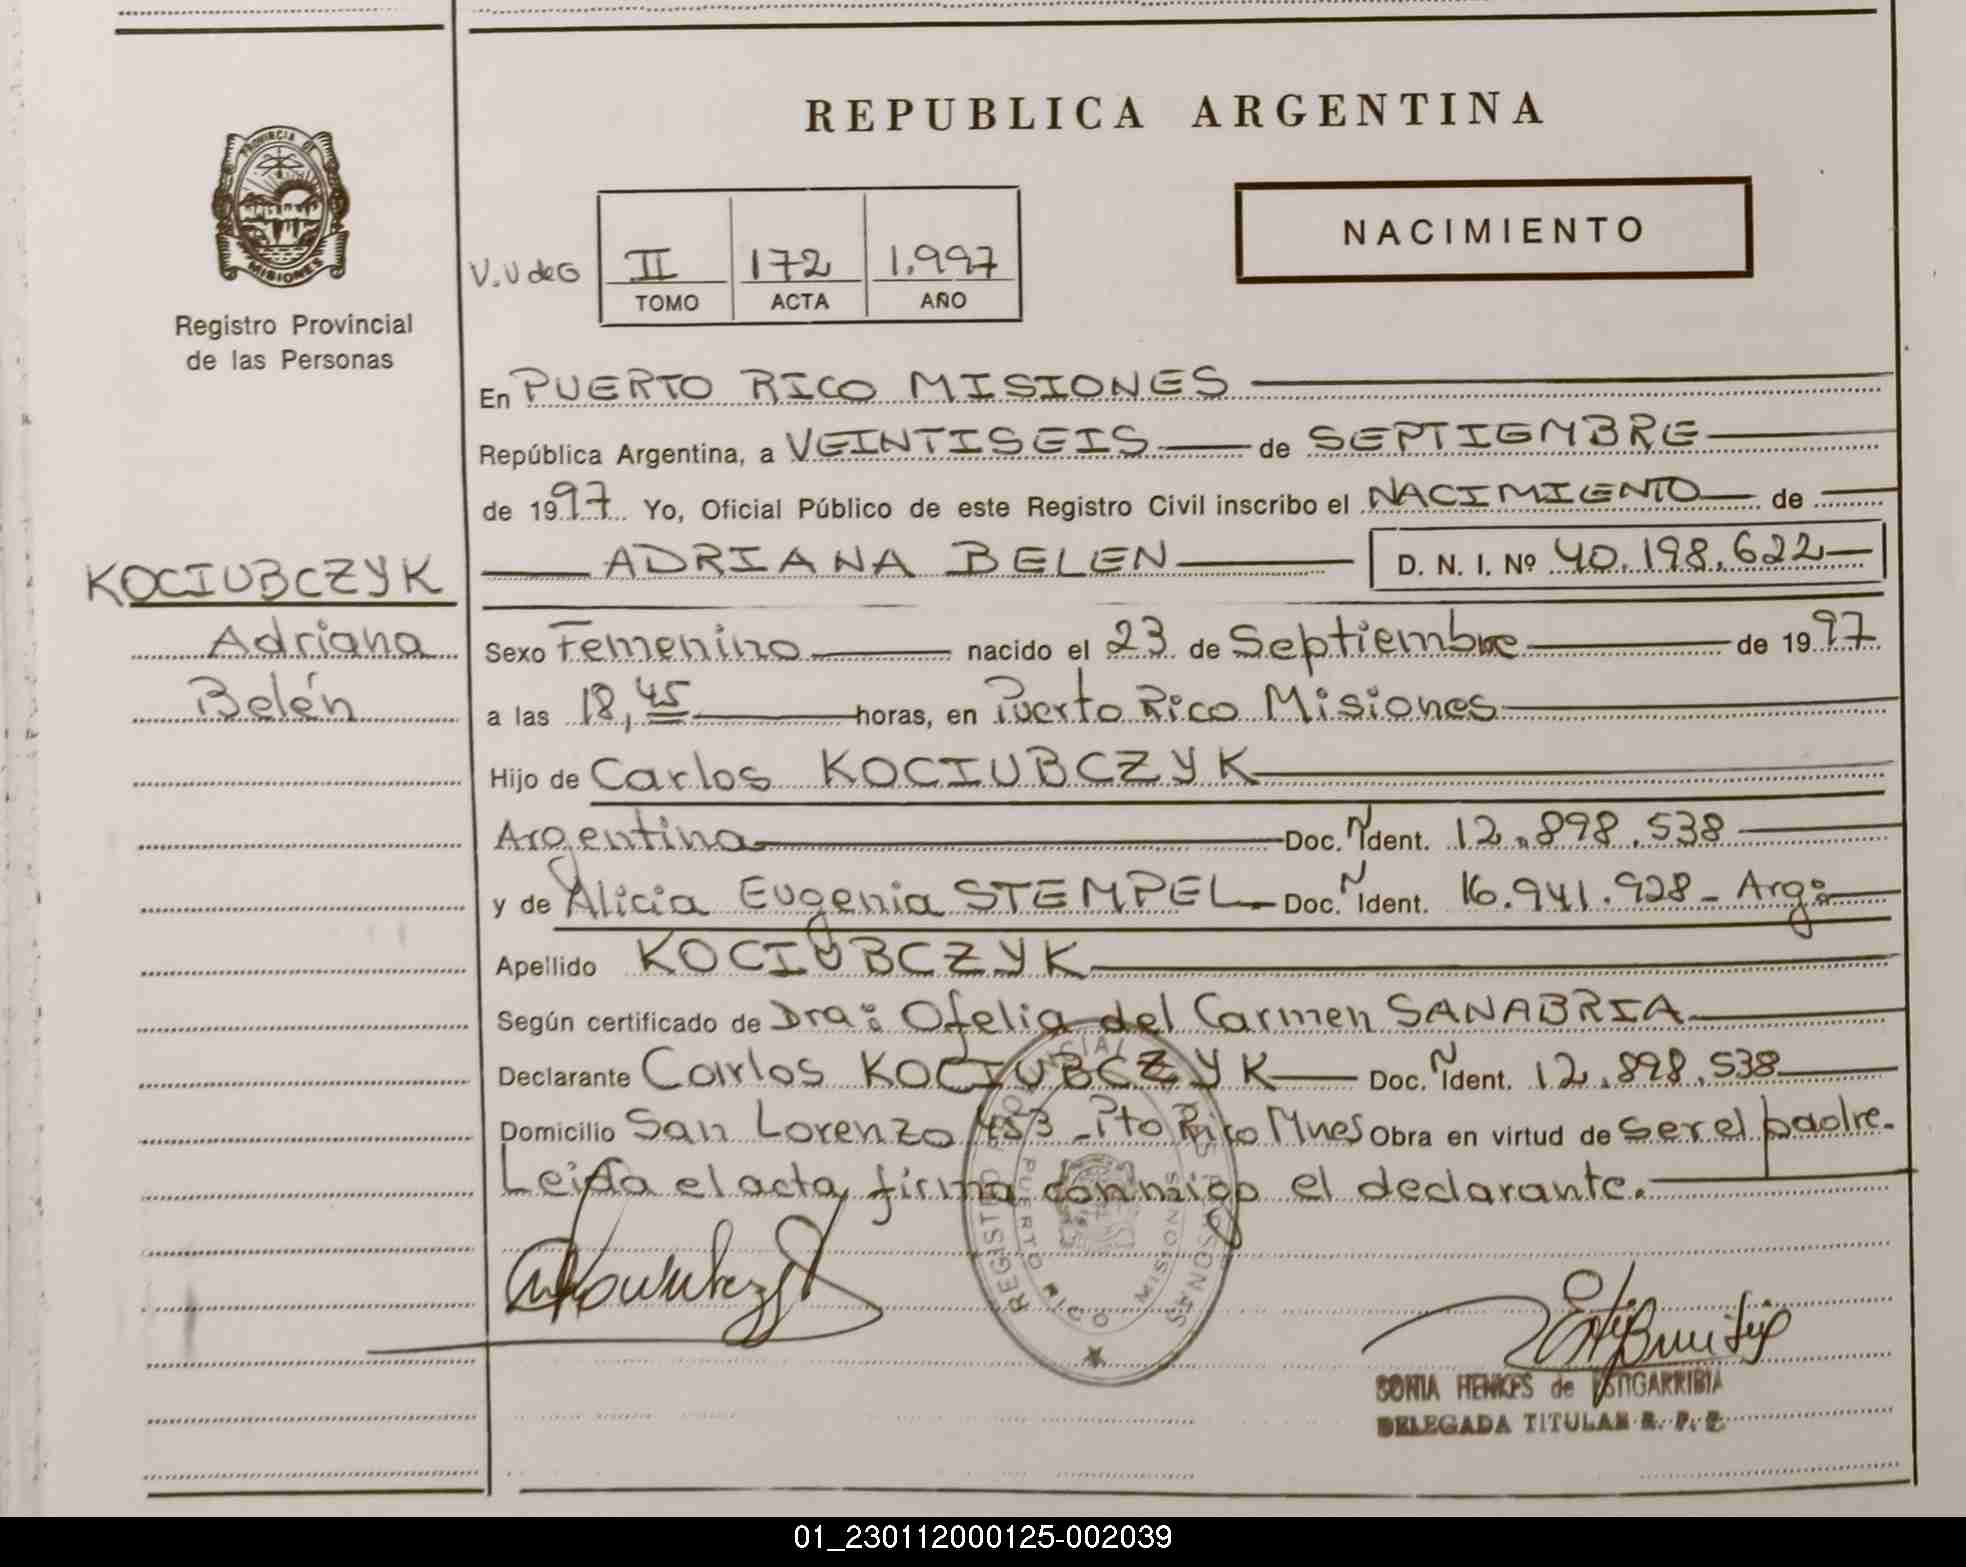 REPUBLICA ARGENTINA
PROVINCIA DE
MISIONES
Registro Provincial
de las Personas
V.U de G
II 172 1.997
TOMO ACTA AÑO
NACIMIENTO
En PUERTO RICO MISIONES
República Argentina, a VEINTISEIS de SEPTIEMBRE
de 1997 Yo, Oficial Público de este Registro Civil inscribo el NACIMIENTO de
ADRIANA BELEN D. N. I. Nº 40.198.622
KOCIUBCZYK
Adriana
Belén
Sexo Femenino nacido el 23 de Septiembre de 1997
a las 18,45 horas, en Puerto Rico Misiones
Hijo de Carlos KOCIUBCZYK
Argentina Doc. Ident. 12.898.538
y de Alicia Eugenia STEMPEL Doc. Ident. 16.941.928 - Arg:
Apellido KOCIUBCZYK
Según certificado de Dra: Ofelia del Carmen SANABRIA
Declarante Carlos KOCIUBCZYK Doc. Ident. 12.898.538
Domicilio San Lorenzo 453 - Pto Rico Mnes Obra en virtud de ser el padre.
Leida el acta, firma conmigo el declarante.
REGISTRO PROVINCIAL DE LAS PERSONAS
PUERTO RICO MISIONES
SONIA HENKES de ESTIGARRIBIA
DELEGADA TITULAR R. P. P.
01_230112000125-002039